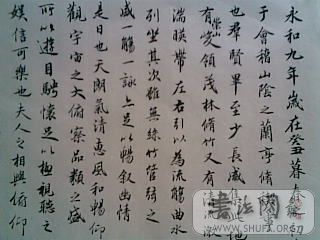 永和九年歲在癸丑暮春初
于會稽山陰之蘭亭脩
也群賢畢至少長咸集地
有崇山峻領茂林脩竹又有清流激
湍暎帶左右引以為流觴曲水
列坐其次雖無絲竹管弦之
盛一觴一詠亦足以暢敘幽情
是日也天朗氣清惠風和暢仰
觀宇宙之大俯察品類之盛
所以遊目騁懷足以極視聽之
娛信可樂也夫人之相與俯仰
书法网